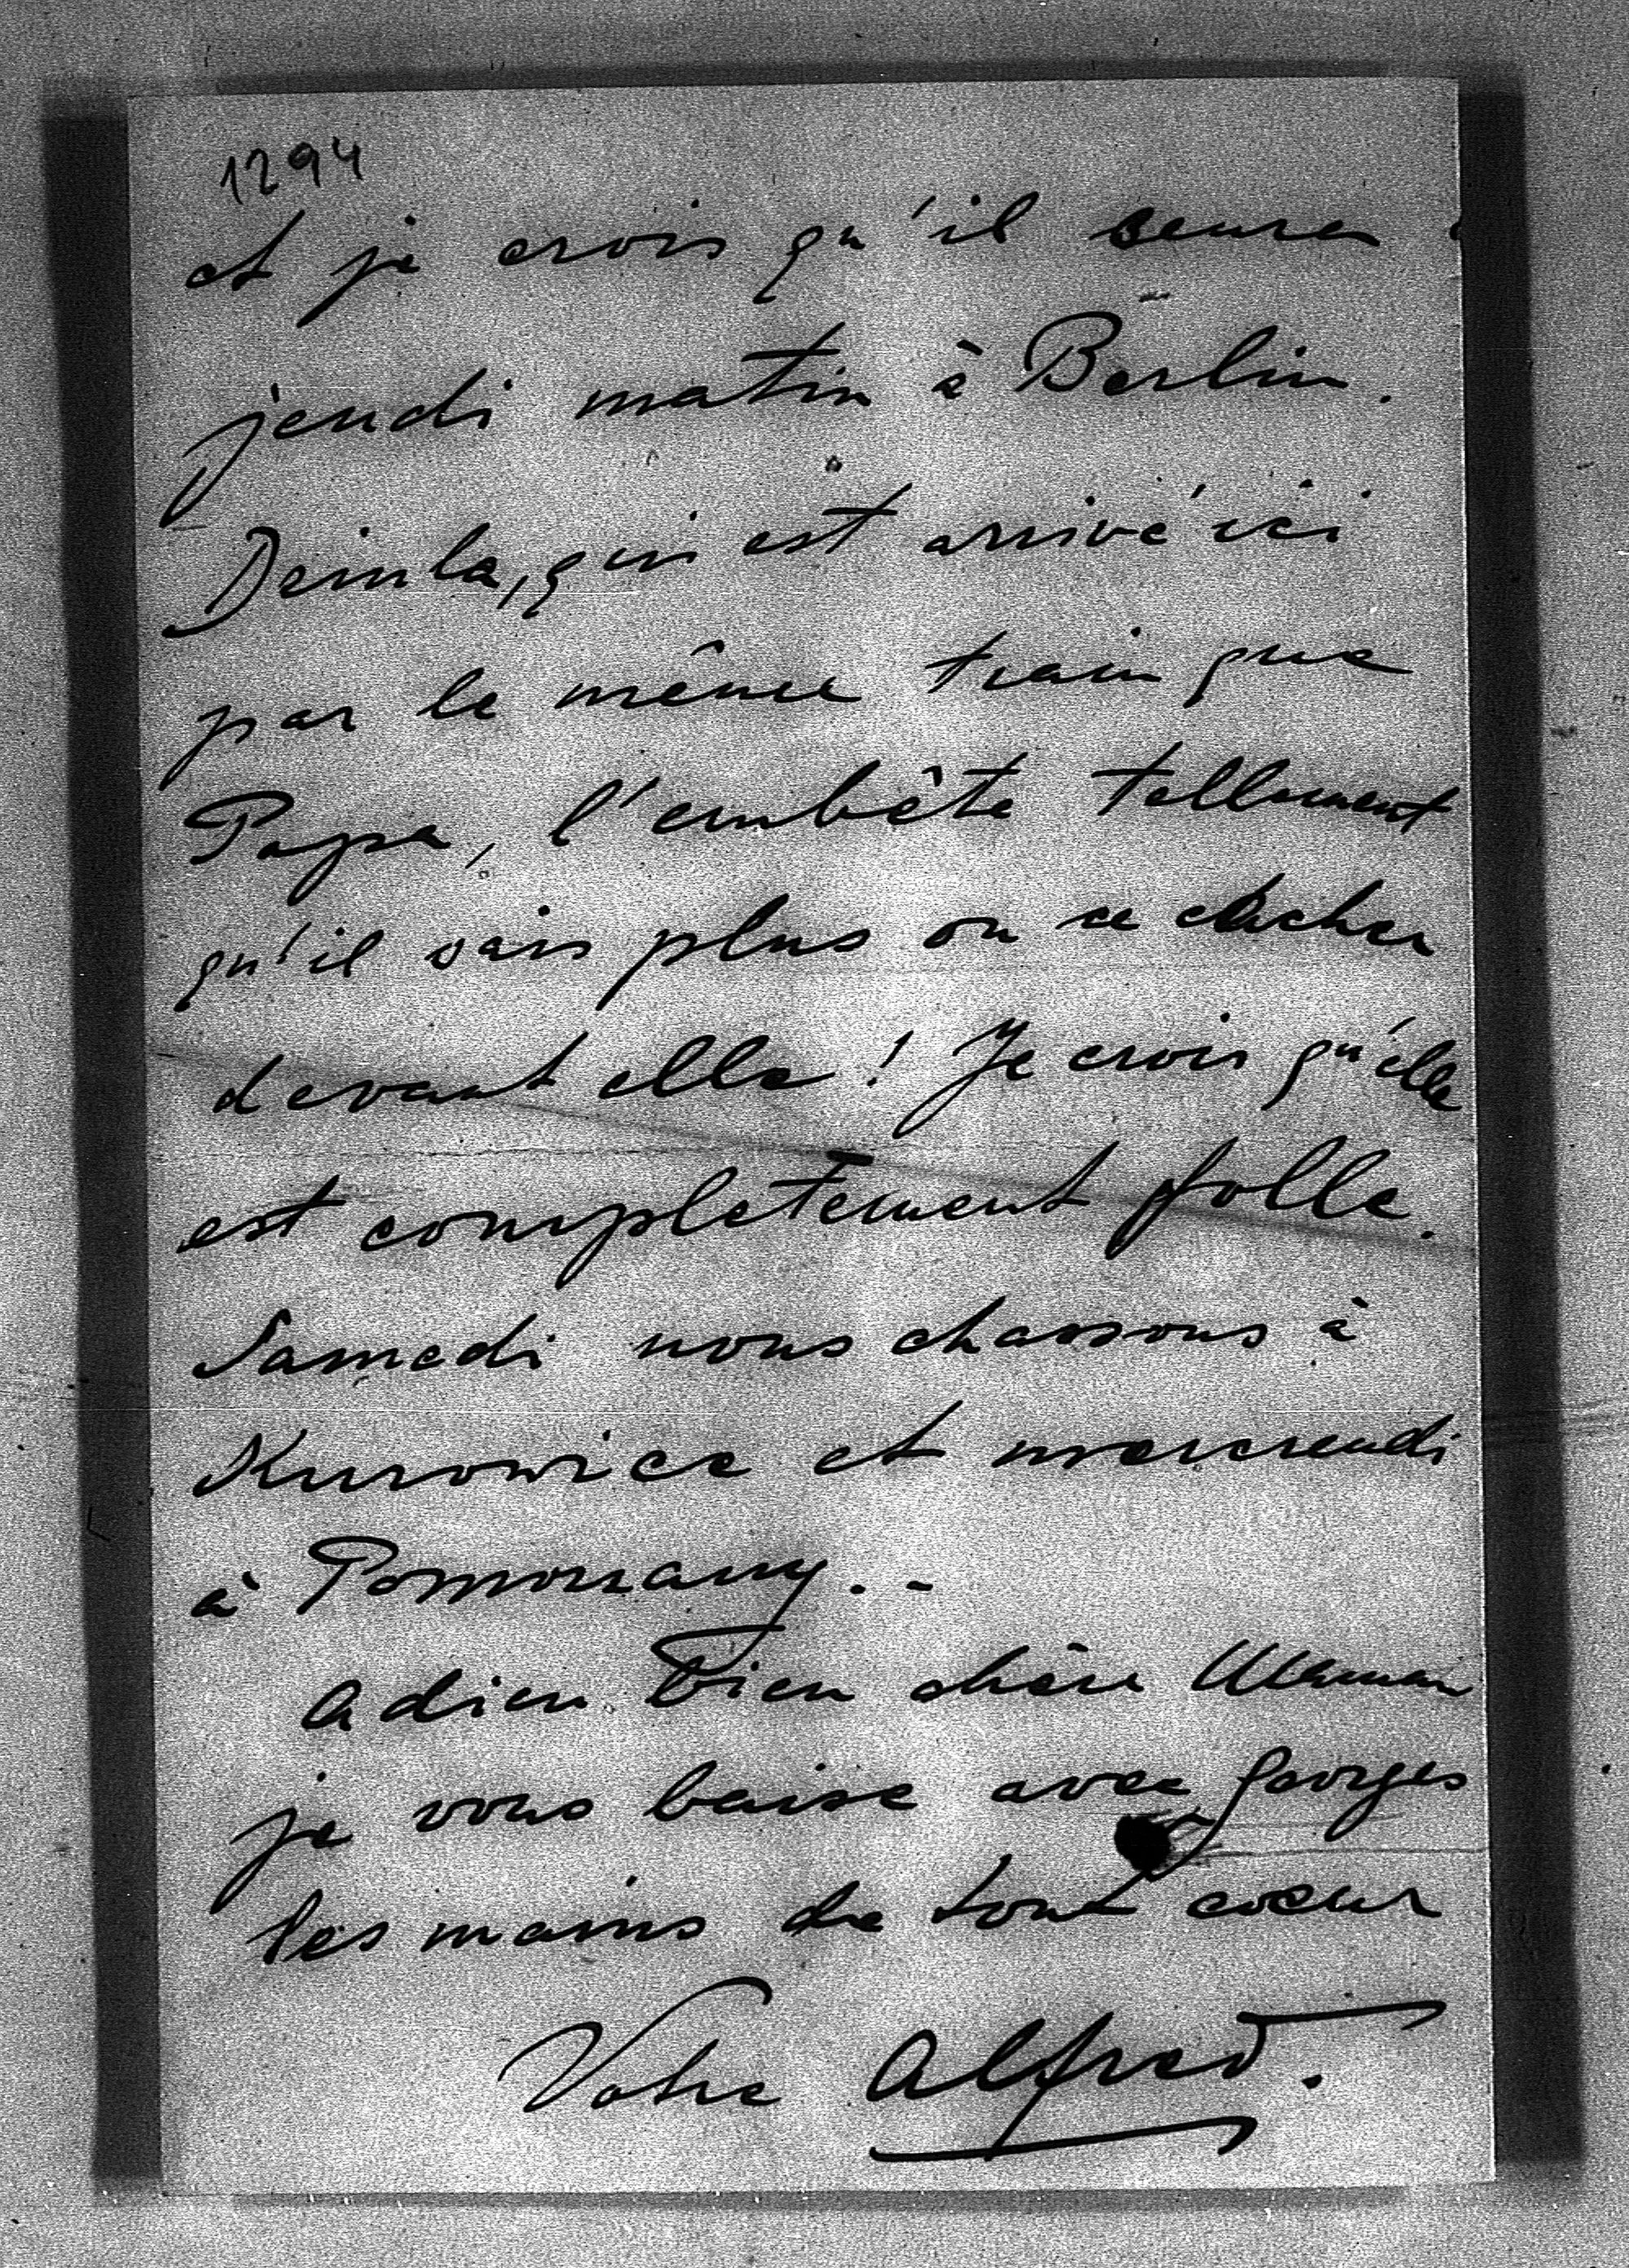 1294
et je crois qu'il seura
jeudi matin à Berlin.
qui est arrivé ici
par le même train que
Papa, l'embête tellement
qu'il sais plus ou se cacher
devant elle! Je crois qu'elle
est complètement folle.
Samedi nous chassons à
Kurowice et mercredi
à Pomorzany. -
Adieu bien chère Maman
je vous baise avec Georges
les mains de tout coeur
Votre Alfred.